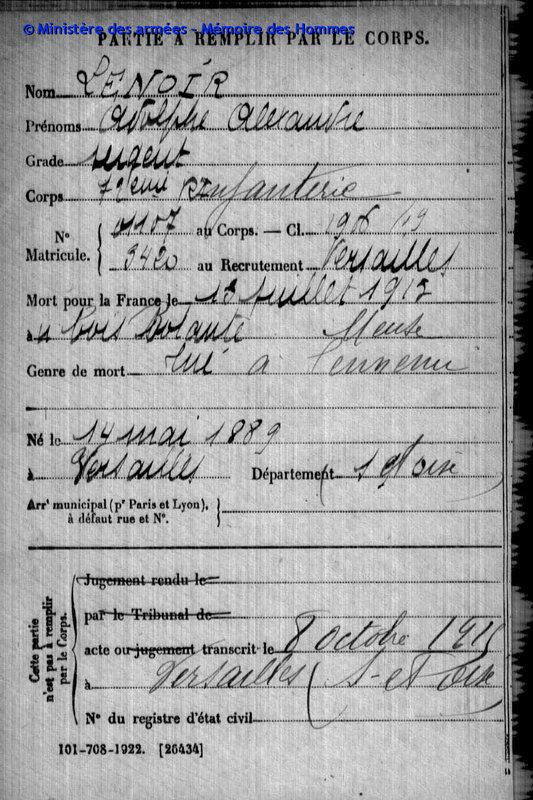 © Ministère des armées - Mémoire des Hommes
PARTIE À REMPLIR PAR LE CORPS.
Nom LENOIR
Prénoms Adolphe Alexandre
Grade sergent
Corps 72ème Rt Infanterie
N° Matricule. { 01107 au Corps. — Cl. 1906
3420 au Recrutement Versailles
Mort pour la France le 13 Juillet 1915
à Bois Bolante Meuse
Genre de mort Tué à l'ennemi
Né le 14 mai 1889
à Versailles Département S et Oise
Arrt municipal (pr Paris et Lyon), à défaut rue et N°.
Cette partie n'est pas à remplir par le Corps.
Jugement rendu le
par le Tribunal de
acte ou jugement transcrit le 8 octobre 1915
à Versailles (S-et Oise)
N° du registre d'état civil
101-708-1922. [26434]